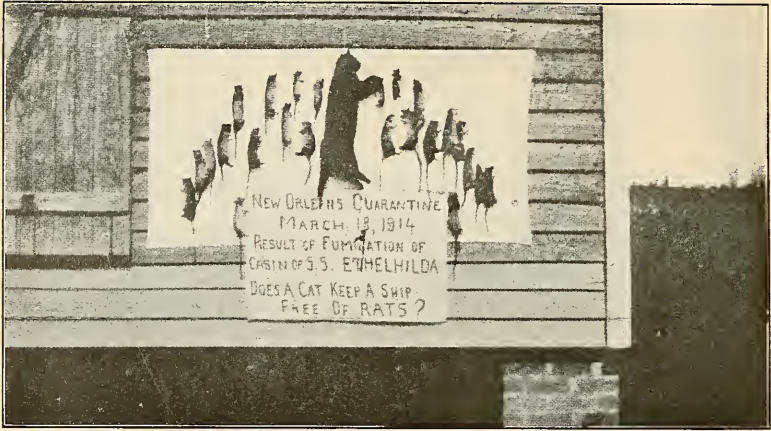 NEW ORLEANS QUARANTINE
MARCH, 18, 1914
RESULT OF FUMIGATION OF
CABIN OF S.S. ETHELHILDA
DOES A CAT KEEP A SHIP
FREE OF RATS?